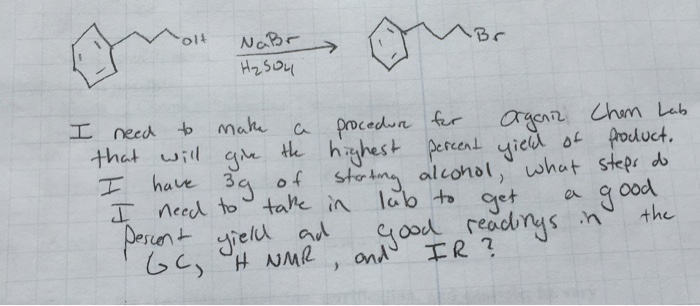 OH NaBr Br
H2SO4
I need to make a procedure for Organic Chem Lab
that will give the highest percent yield of product.
I have 3g of starting alcohol, what steps do
I need to take in lab to get a good
percent yield ad good readings in the
GC, H NMR, and IR?